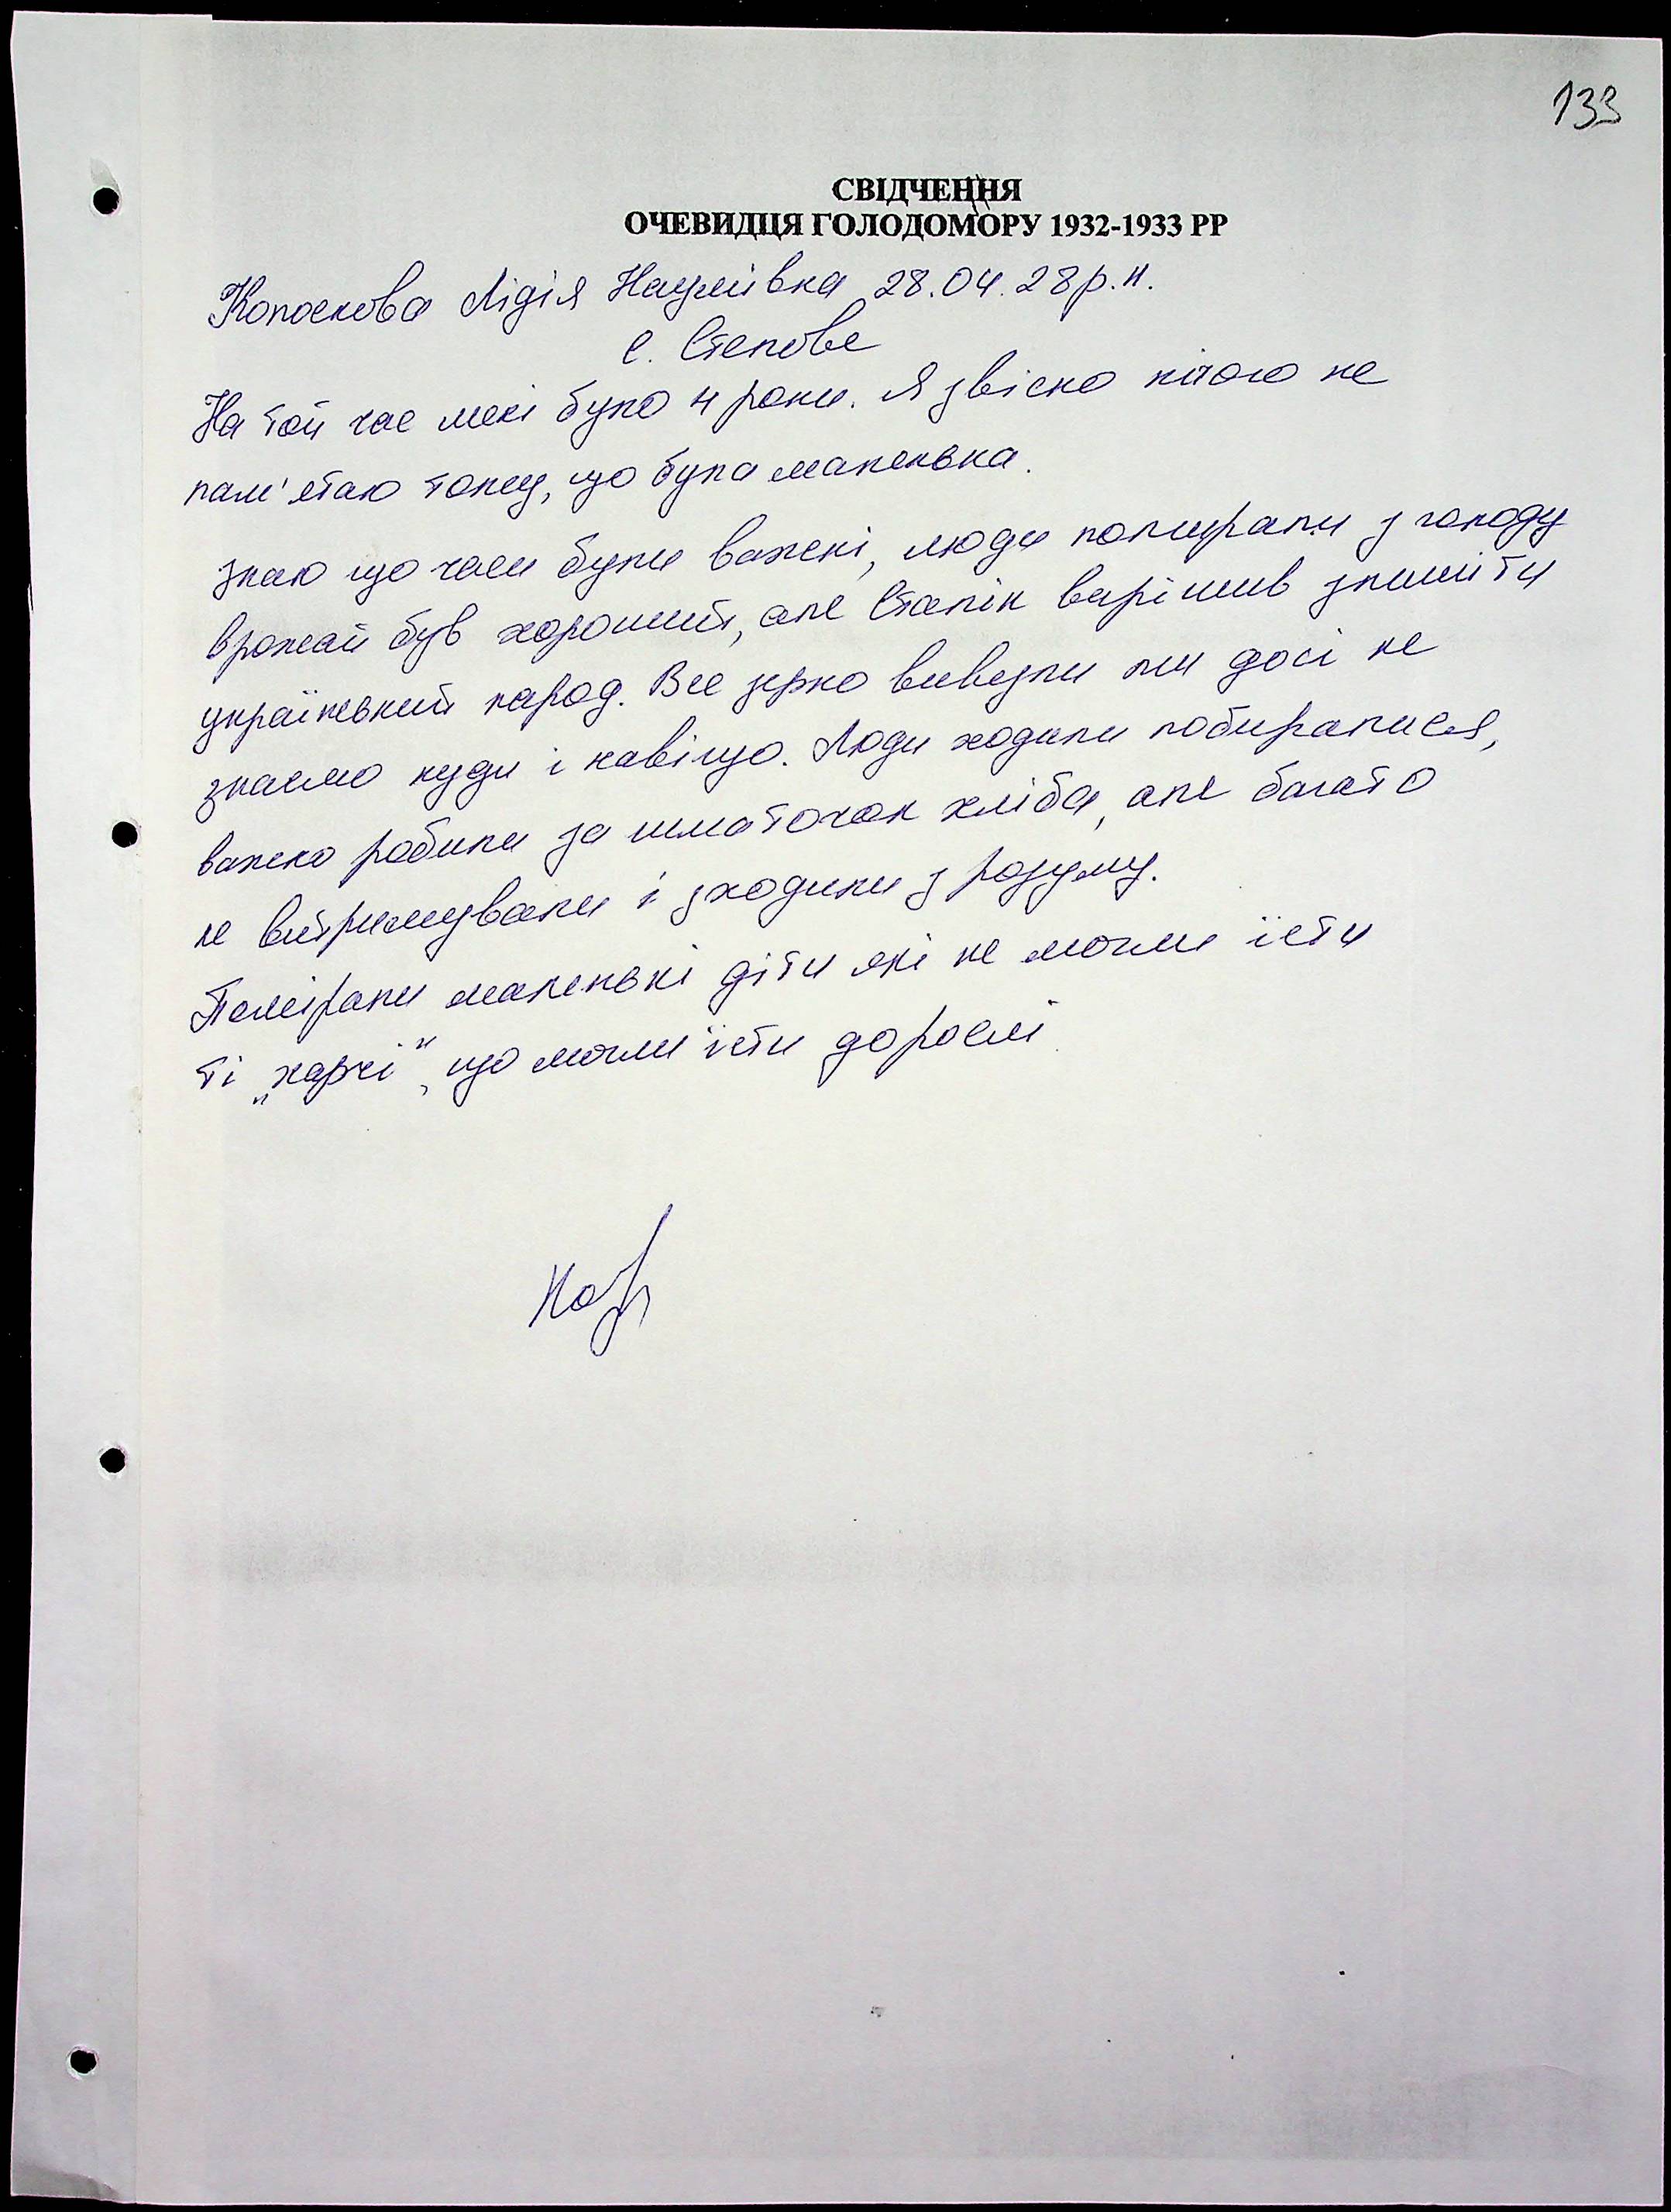 133
СВІДЧЕННЯ
ОЧЕВИДЦЯ ГОЛОДОМОРУ 1932-1933 РР
Колоскова Лідія Наумівна 28.04.28р.н.
с. Степове
На той час мені було 4 роки. Я звісно нічого не
пам'ятаю тому, що була маленька.
знаю що часи були важкі, люди помирали з голоду
врожай був хороший, але Сталін вирішив знищити
український народ. Все зерно вивезли ми досі не
знаємо куди і навіщо. Люди ходили побиралися,
важко робили за шматочок хліба, але багато
не витримували і зходили з розуму.
Помірали маленькі діти які не могли їсти
ті „харчі", що могли їсти дорослі